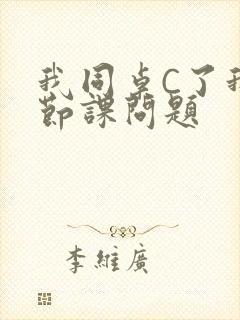 我同桌C了我
节課問題
李維廣